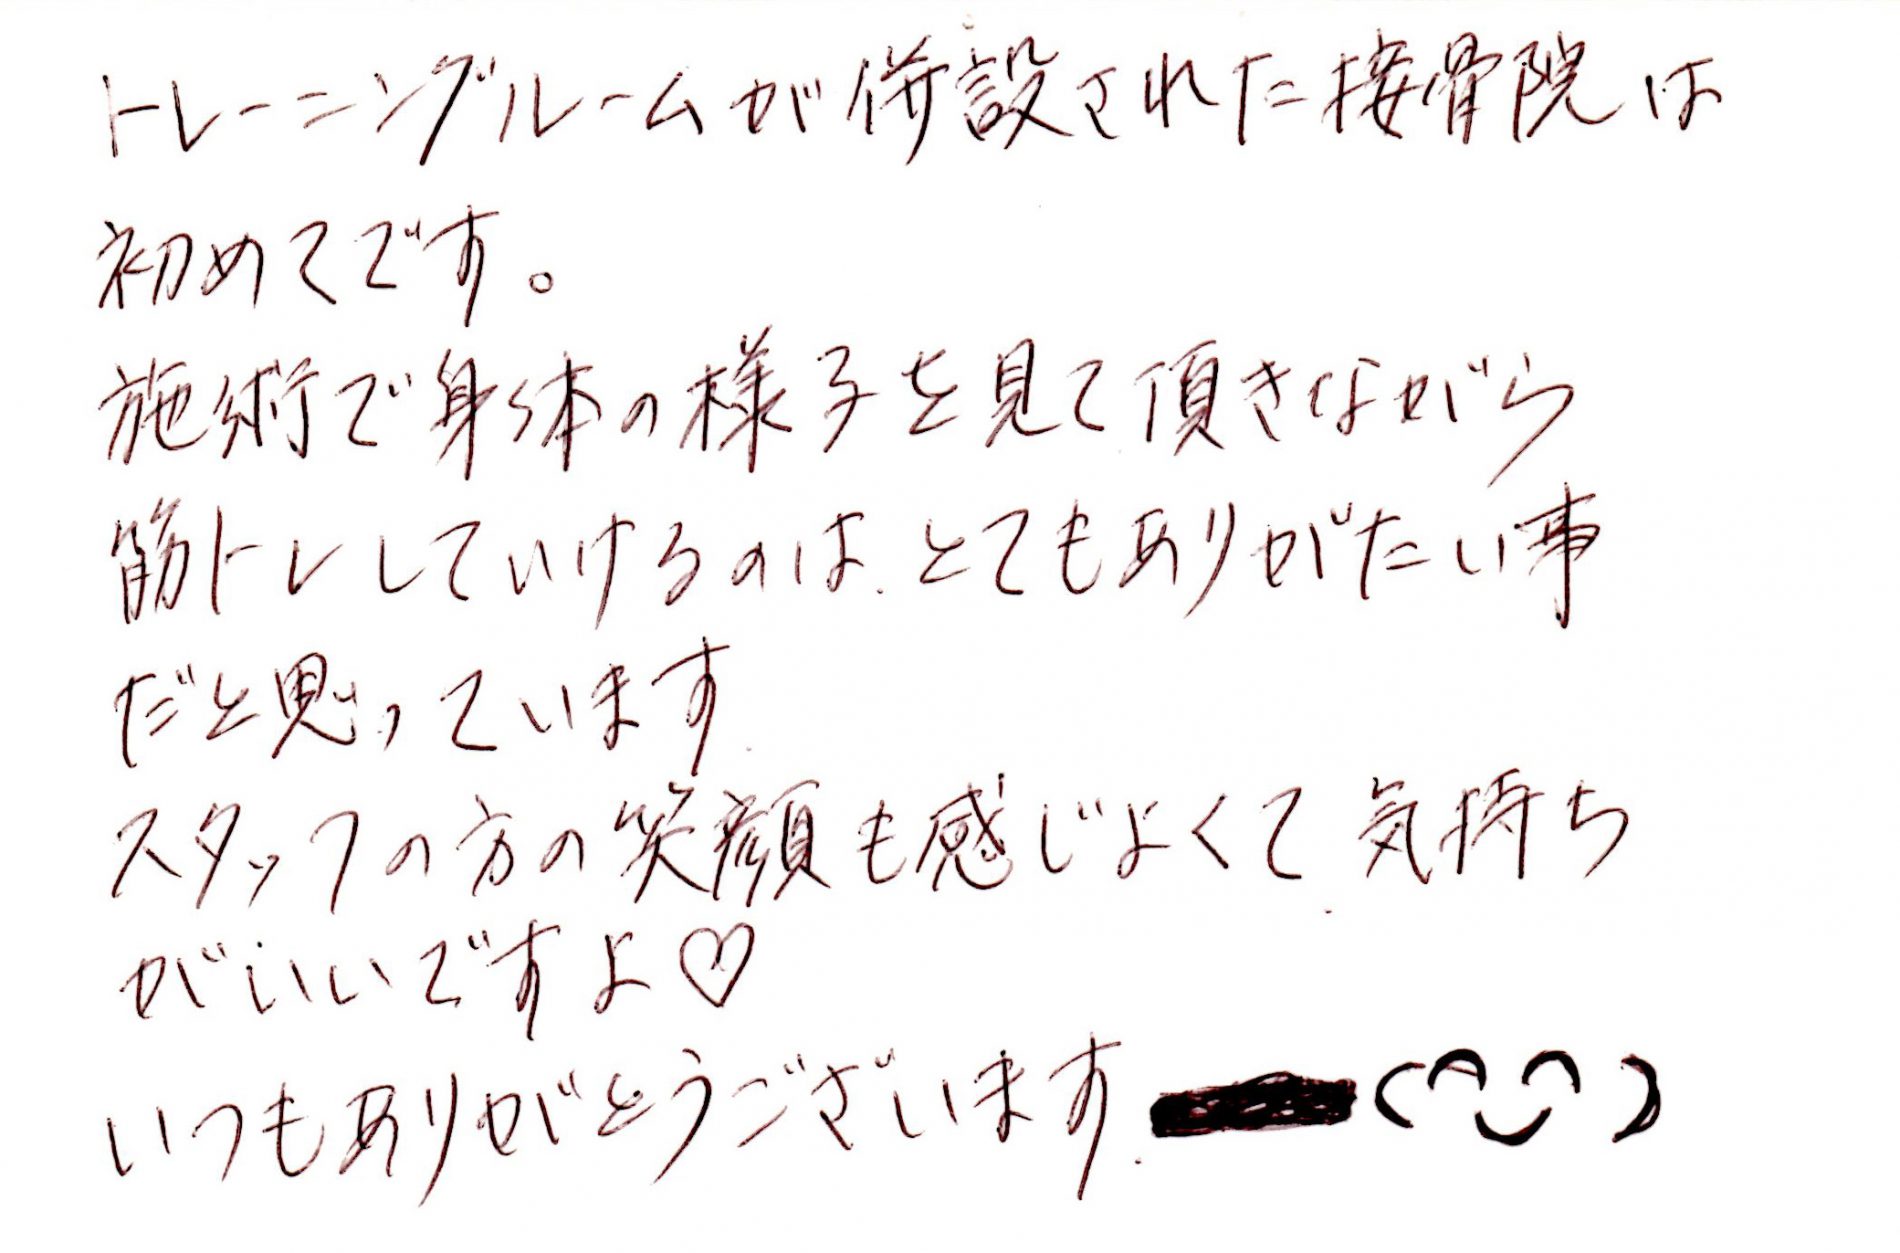 トレーニングルームが併設された接骨院は
初めてです。
施術で身体の様子を見て頂きながら
筋トレしていけるのは、とてもありがたい事
だと思っています
スタッフの方の笑顔も感じよくて気持ち
がいいですよ♡
いつもありがとうございます (^‿^)